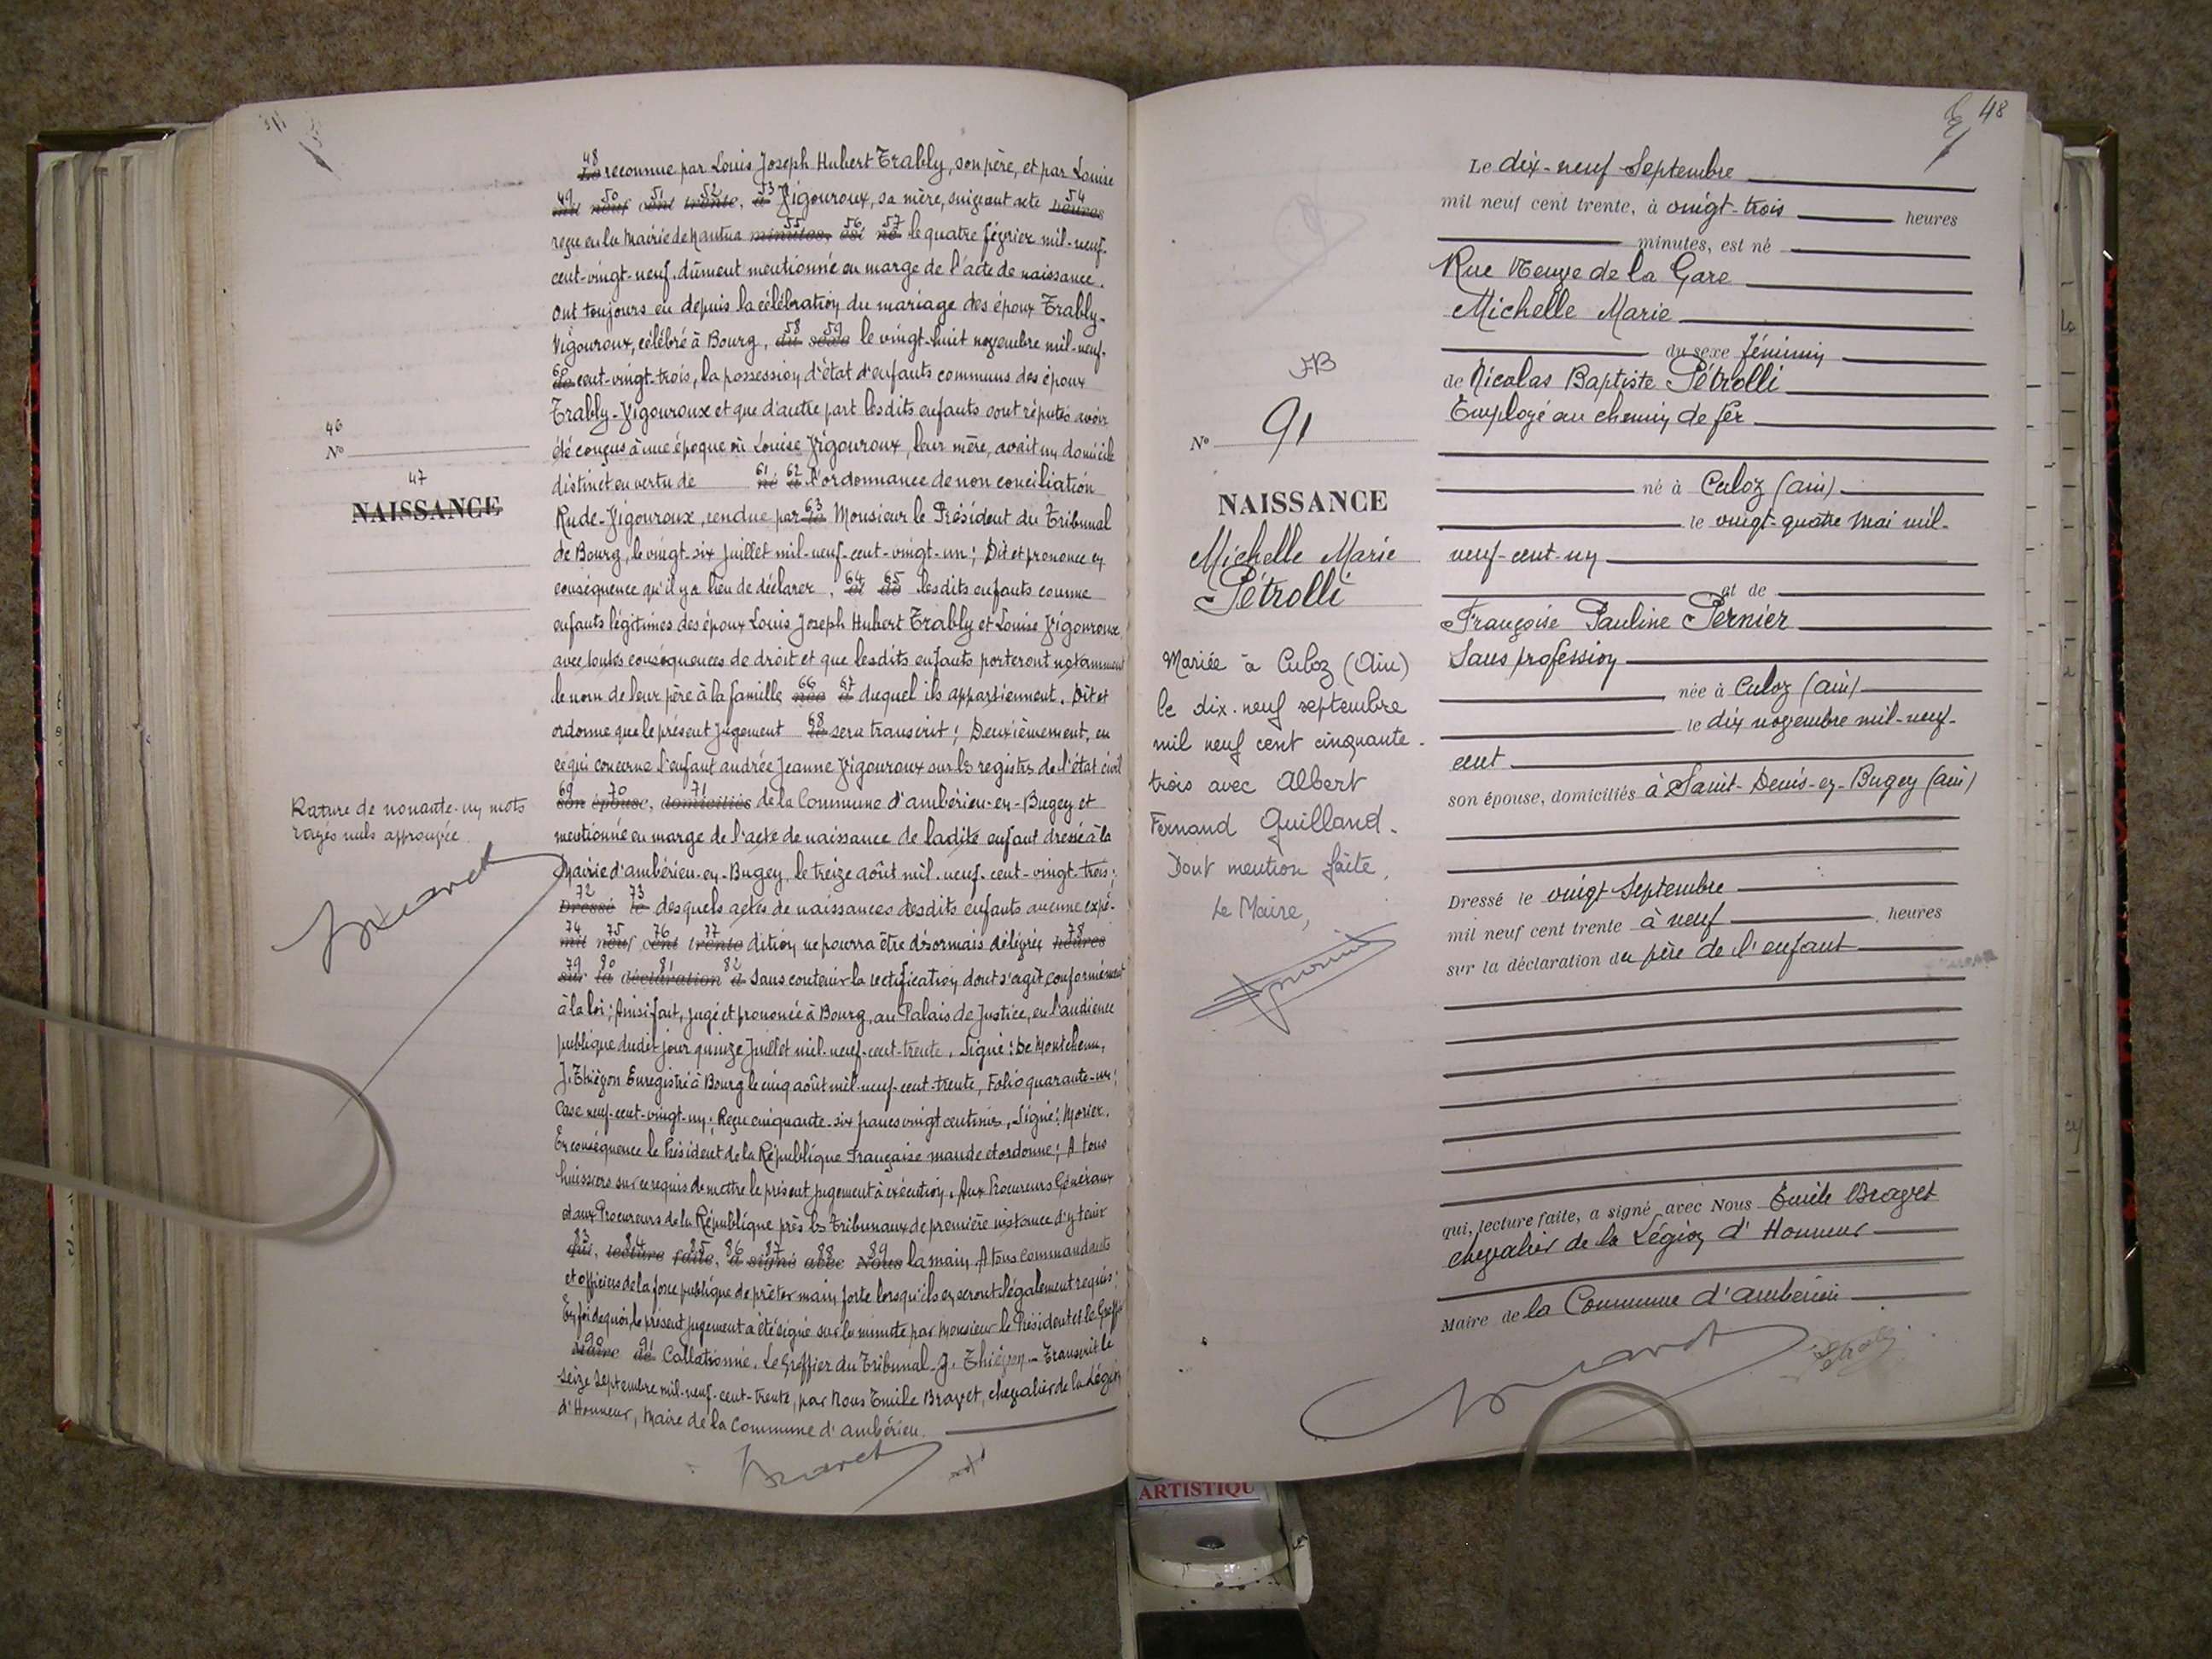 48
reconnue par Louis Joseph Hubert Trably, son père, et par Louise
49 50 51 52 53 54
mil neuf cent trente, à Vigouroux, sa mère, suivant acte heures
55 56 57
reçu en la Mairie de Nantua minutes, est né le quatre février mil-neuf-
cent-vingt-neuf. dûment mentionné en marge de l'acte de naissance.
ont toujours eu depuis la célébration du mariage des époux Trably-
58 59
Vigouroux, célébré à Bourg, du sexe le vingt-huit novembre mil-neuf-
60
de cent-vingt-trois, la possession d'état d'enfants communs des époux
Trably-Vigouroux et que d'autre part lesdits enfants sont réputés avoir
été conçus à une époque où Louise Vigouroux, leur mère, avait un domicile
61 62
distinct en vertu de né à l'ordonnance de non conciliation
63
Rude-Vigouroux, rendue par le Monsieur le Président du Tribunal
de Bourg, le vingt-six Juillet mil-neuf-cent-vingt-un; Dit et prononce en
64 65
conséquence qu'il y a lieu de déclarer, et de lesdits enfants comme
enfants légitimes des époux Louis Joseph Hubert Trably et Louise Vigouroux,
avec toutes conséquences de droit et que lesdits enfants porteront notamment
66 67
le nom de leur père à la famille née à duquel ils appartiennent. Dit et
68
ordonne que le présent Jugement le sera transcrit; Deuxièmement, en
ce qui concerne l'enfant andrée Jeanne Vigouroux sur les registres de l'état civil
69 70 71
son épouse, domiciliés de la Commune d'ambérieu-en-Bugey et
mentionné en marge de l'acte de naissance de ladite enfant dressé à la
Mairie d'ambérieu-en-Bugey, le treize août mil-neuf-cent-vingt-trois;
72 73
Dressé le desquels actes de naissances desdits enfants aucune expé-
74 75 76 77 78
mil neuf cent trente dition ne pourra être désormais délivrée heures
79 80 81 82
sur la déclaration d sans contenir la rectification dont s'agit conformément
à la loi; Ainsi fait, jugé et prononcé à Bourg, au Palais de Justice, en l'audience
publique dudit jour quinze Juillet mil-neuf-cent-trente. Signé: De Montchenu,
J. Thiézon Enregistré à Bourg le cinq août mil-neuf-cent-trente, Folio quarante-un;
Case neuf-cent-vingt-un; Reçu cinquante-six francs vingt centimes, Signé: Morier.
En conséquence le Président de la République Française mande et ordonne; A tous
huissiers sur ce requis de mettre le présent jugement à exécution. Aux Procureurs Généraux
et aux Procureurs de la République près les Tribunaux de première instance d'y tenir
83 84 85 86 87 88 89
qui, lecture faite, a signé avec Nous la main. A tous Commandants
et officiers de la force publique de prêter main forte lorsqu'ils en seront légalement requis;
En foi de quoi, le présent jugement a été signé sur la minute par Monsieur le Président et le Greffier
90 91
Maire de Collationné. Le Greffier du Tribunal J. Thiézon - Transcrit le
seize Septembre mil-neuf-cent-trente, par Nous Emile Bravet, chevalier de la Légion
d'Honneur, Maire de la Commune d'ambérieu.
Bravet
46
No
47
NAISSANCE
Rature de nonante-un mots
rayés nuls approuvée
Bravet
48
JB
No 91
NAISSANCE
Michelle Marie
Pétrolli
Mariée à Culoz (Ain)
le dix-neuf septembre
mil neuf cent cinquante-
trois avec Albert
Fernand Guilland.
Dont mention faite,
Le Maire,
Le dix-neuf Septembre
mil neuf cent trente, à vingt-trois heures
minutes, est né
Rue Neuve de la Gare
Michelle Marie
du sexe féminin
de Nicolas Baptiste Pétrolli
Employé au chemin de fer
né à Culoz (ain)
le vingt-quatre Mai mil-
neuf-cent-un
et de
Françoise Pauline Pernier
Sans profession
née à Culoz (ain)
le dix novembre mil-neuf-
cent
son épouse, domiciliés à Saint-Denis-en-Bugey (ain)
Dressé le vingt Septembre
mil neuf cent trente à neuf heures
sur la déclaration du père de l'enfant
qui, lecture faite, a signé avec Nous Emile Bravet
chevalier de la Légion d'Honneur
Maire de la Commune d'ambérieu
Bravet
ARTISTIQU